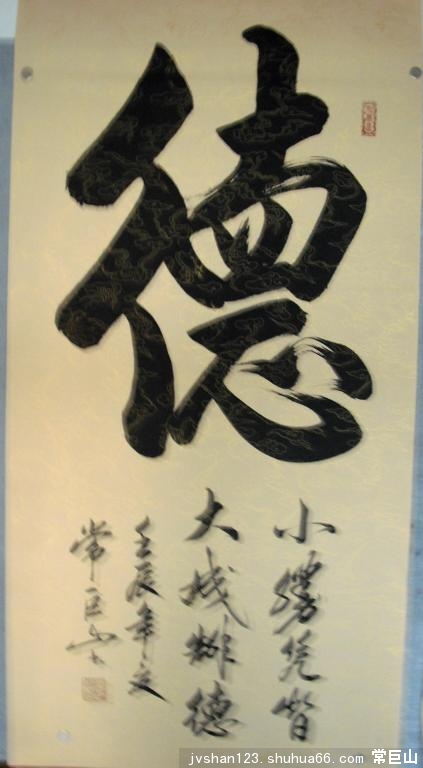 德
小勝凭智
大成靠德
壬辰年
常巨山
jvshan123.shuhua66.com 常巨山